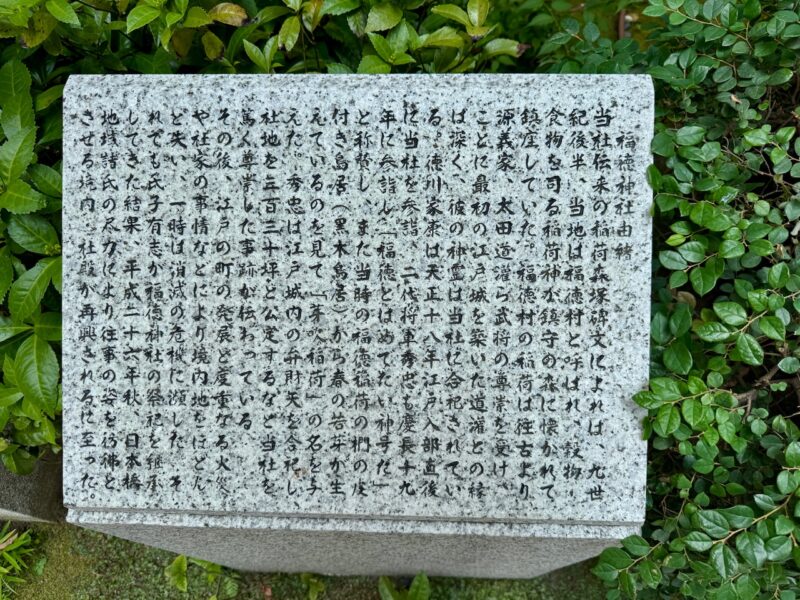 福徳神社由緒
当社伝来の稲荷森塚碑文によれば、九世
紀後半、当地は福徳村と呼ばれ、穀物・
食物を司る稲荷神が鎮守の森に懐かれて
鎮座していた。福徳村の稲荷は往古より
源義家、太田道灌ら武将の尊崇を受け、
ことに最初の江戸城を築いた道灌との縁
は深く、彼の神霊は当社に合祀されてい
る。徳川家康は天正十八年江戸入部直後
に当社を参詣、二代将軍秀忠も慶長十九
年に参詣し「福徳とはめでたい神号だ」
と称賛し、また当時の福徳稲荷の椚の皮
付き鳥居（黒木鳥居）から春の若芽が生
えているのを見て「芽吹稲荷」の名を与
えた。秀忠は江戸城内の弁財天を合祀し、
社地を三百三十坪と公定するなど当社を
篤く尊崇した事跡が伝わっている。
その後、江戸の町の発展と度重なる火災
や社家の事情などにより境内地をほとん
ど失い、一時は消滅の危機に瀕した。そ
れでも氏子有志が福徳神社の祭祀を継承
してきた結果、平成二十六年秋、日本橋
地域諸氏の尽力により往事の姿を彷彿と
させる境内・社殿が再興されるに至った。